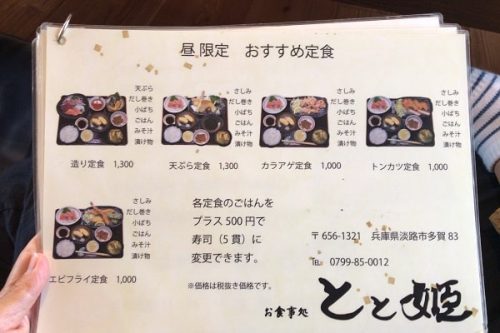 昼限定 おすすめ定食
天ぷら
だし巻き
小ばち
ごはん
みそ汁
漬け物
造り定食 1,300
さしみ
だし巻き
小ばち
ごはん
みそ汁
漬け物
天ぷら定食 1,300
さしみ
だし巻き
小ばち
ごはん
みそ汁
漬け物
カラアゲ定食 1,000
さしみ
だし巻き
小ばち
ごはん
みそ汁
漬け物
トンカツ定食 1,000
さしみ
だし巻き
小ばち
ごはん
みそ汁
漬け物
エビフライ定食 1,000
各定食のごはんを
プラス500円で
寿司（5貫）に
変更できます。
※価格は税抜き価格です。
〒656-1321 兵庫県淡路市多賀83
℡ 0799-85-0012
お食事処 とと姫